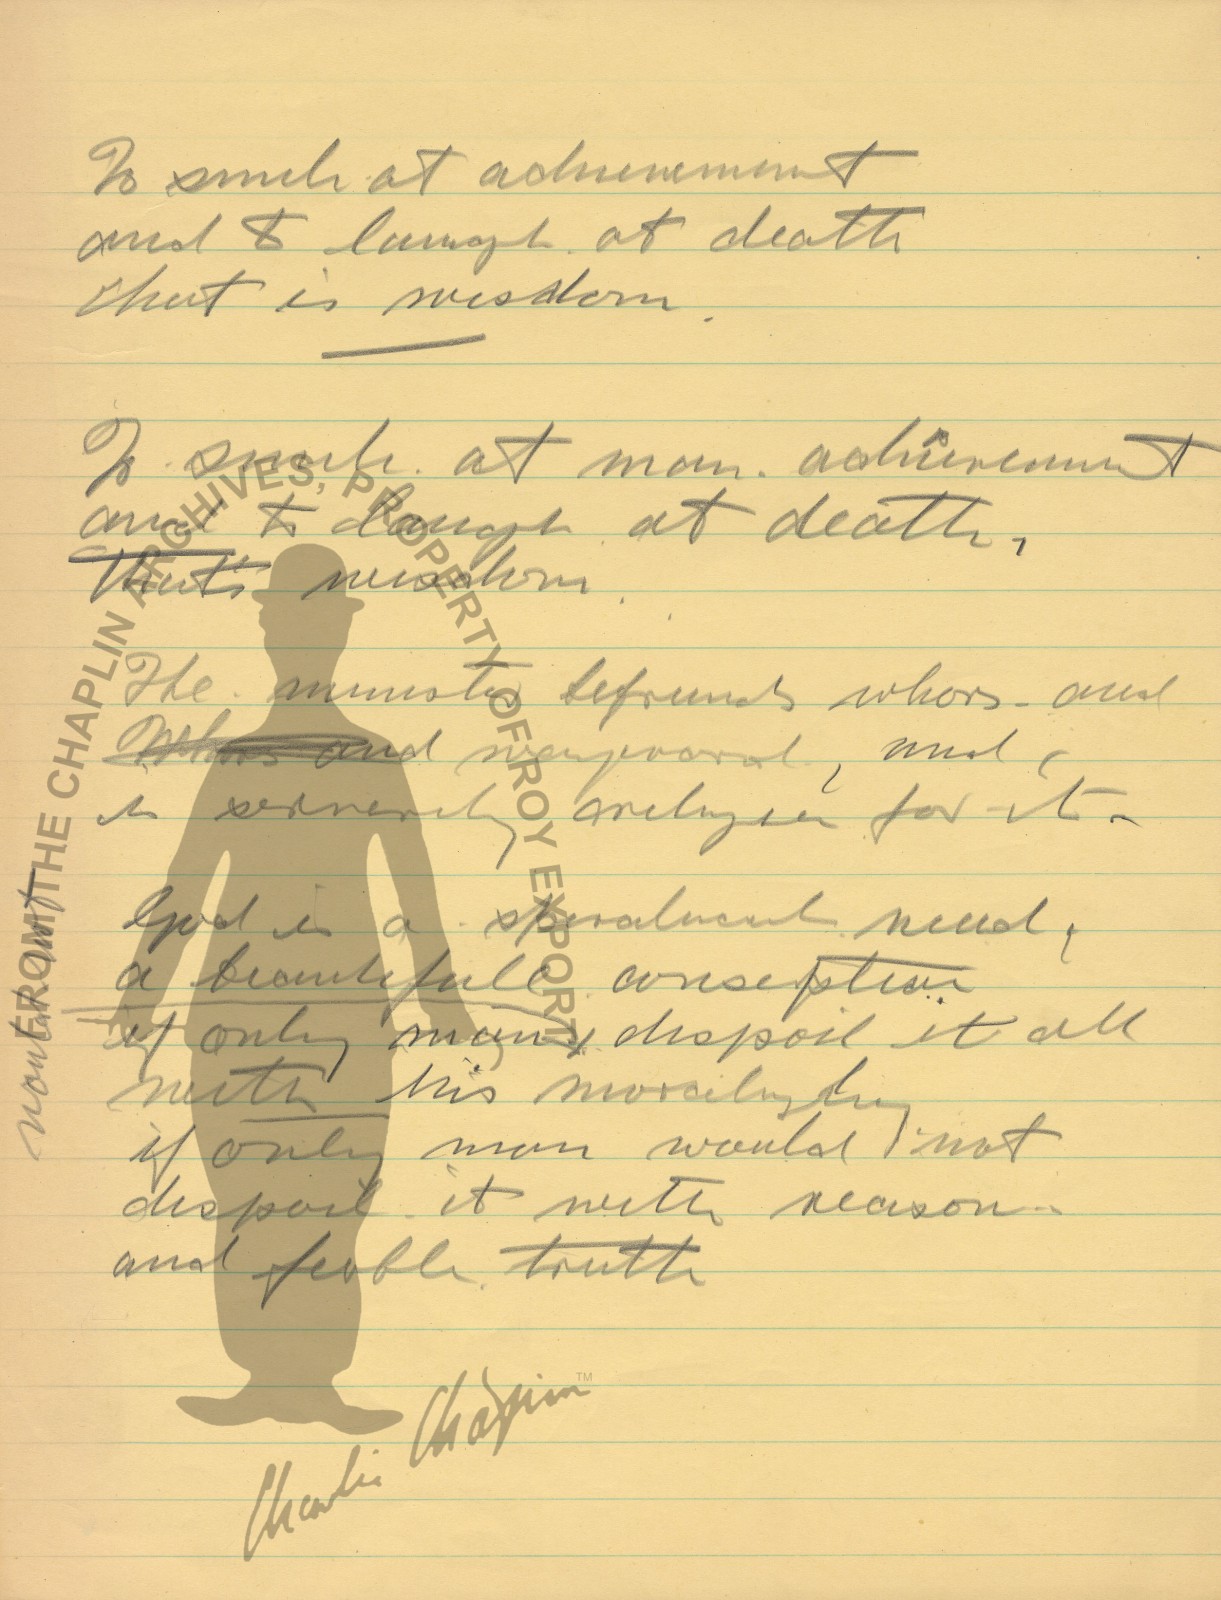 To smile at achievement
and to laugh at death
that is wisdom.
To smile at man achievement
and to laugh at death,
that's wisdom.
The minister befriends whors and
Whors and and
is severely for it -
God is a need,
a beautifull conseption
if only man despoil it all
with his
if only man would not
despoil it with reason -
and feeble truth
FROM THE CHAPLIN ARCHIVES, PROPERTY OF ROY EXPORT
Charlie Chaplin™